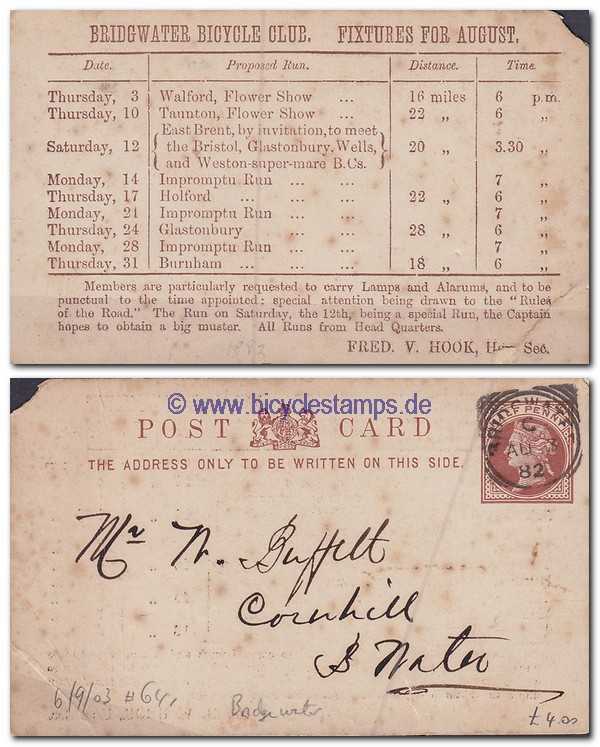 BRIDGWATER BICYCLE CLUB. FIXTURES FOR AUGUST.
Date. Proposed Run. Distance. Time.
Thursday, 3 Walford, Flower Show ... 16 miles 6 p.m.
Thursday, 10 Taunton, Flower Show ... 22 „ 6 „
East Brent, by invitation, to meet
Saturday, 12 the Bristol, Glastonbury, Wells, 20 „ 3.30 „
and Weston-super-mare B.Cs.
Monday, 14 Impromptu Run ... ... 7 „
Thursday, 17 Holford ... ... ... 22 „ 6 „
Monday, 21 Impromptu Run ... ... 7 „
Thursday, 24 Glastonbury ... ... 28 „ 6 „
Monday, 28 Impromptu Run ... ... 7 „
Thursday, 31 Burnham ... ... ... 18 „ 6 „
Members are particularly requested to carry Lamps and Alarums, and to be
punctual to the time appointed: special attention being drawn to the "Rules
of the Road." The Run on Saturday, the 12th, being a special Run, the Captain
hopes to obtain a big muster. All Runs from Head Quarters.
FRED. V. HOOK, Hon. Sec.
© www.bicyclestamps.de
POST CARD
THE ADDRESS ONLY TO BE WRITTEN ON THIS SIDE.
BRIDGWATER
HALFPENNY
C
AU 3
82
Mr W.
Cornhill
B Water
6/9/03 #64,
Bridgewater
£4.00